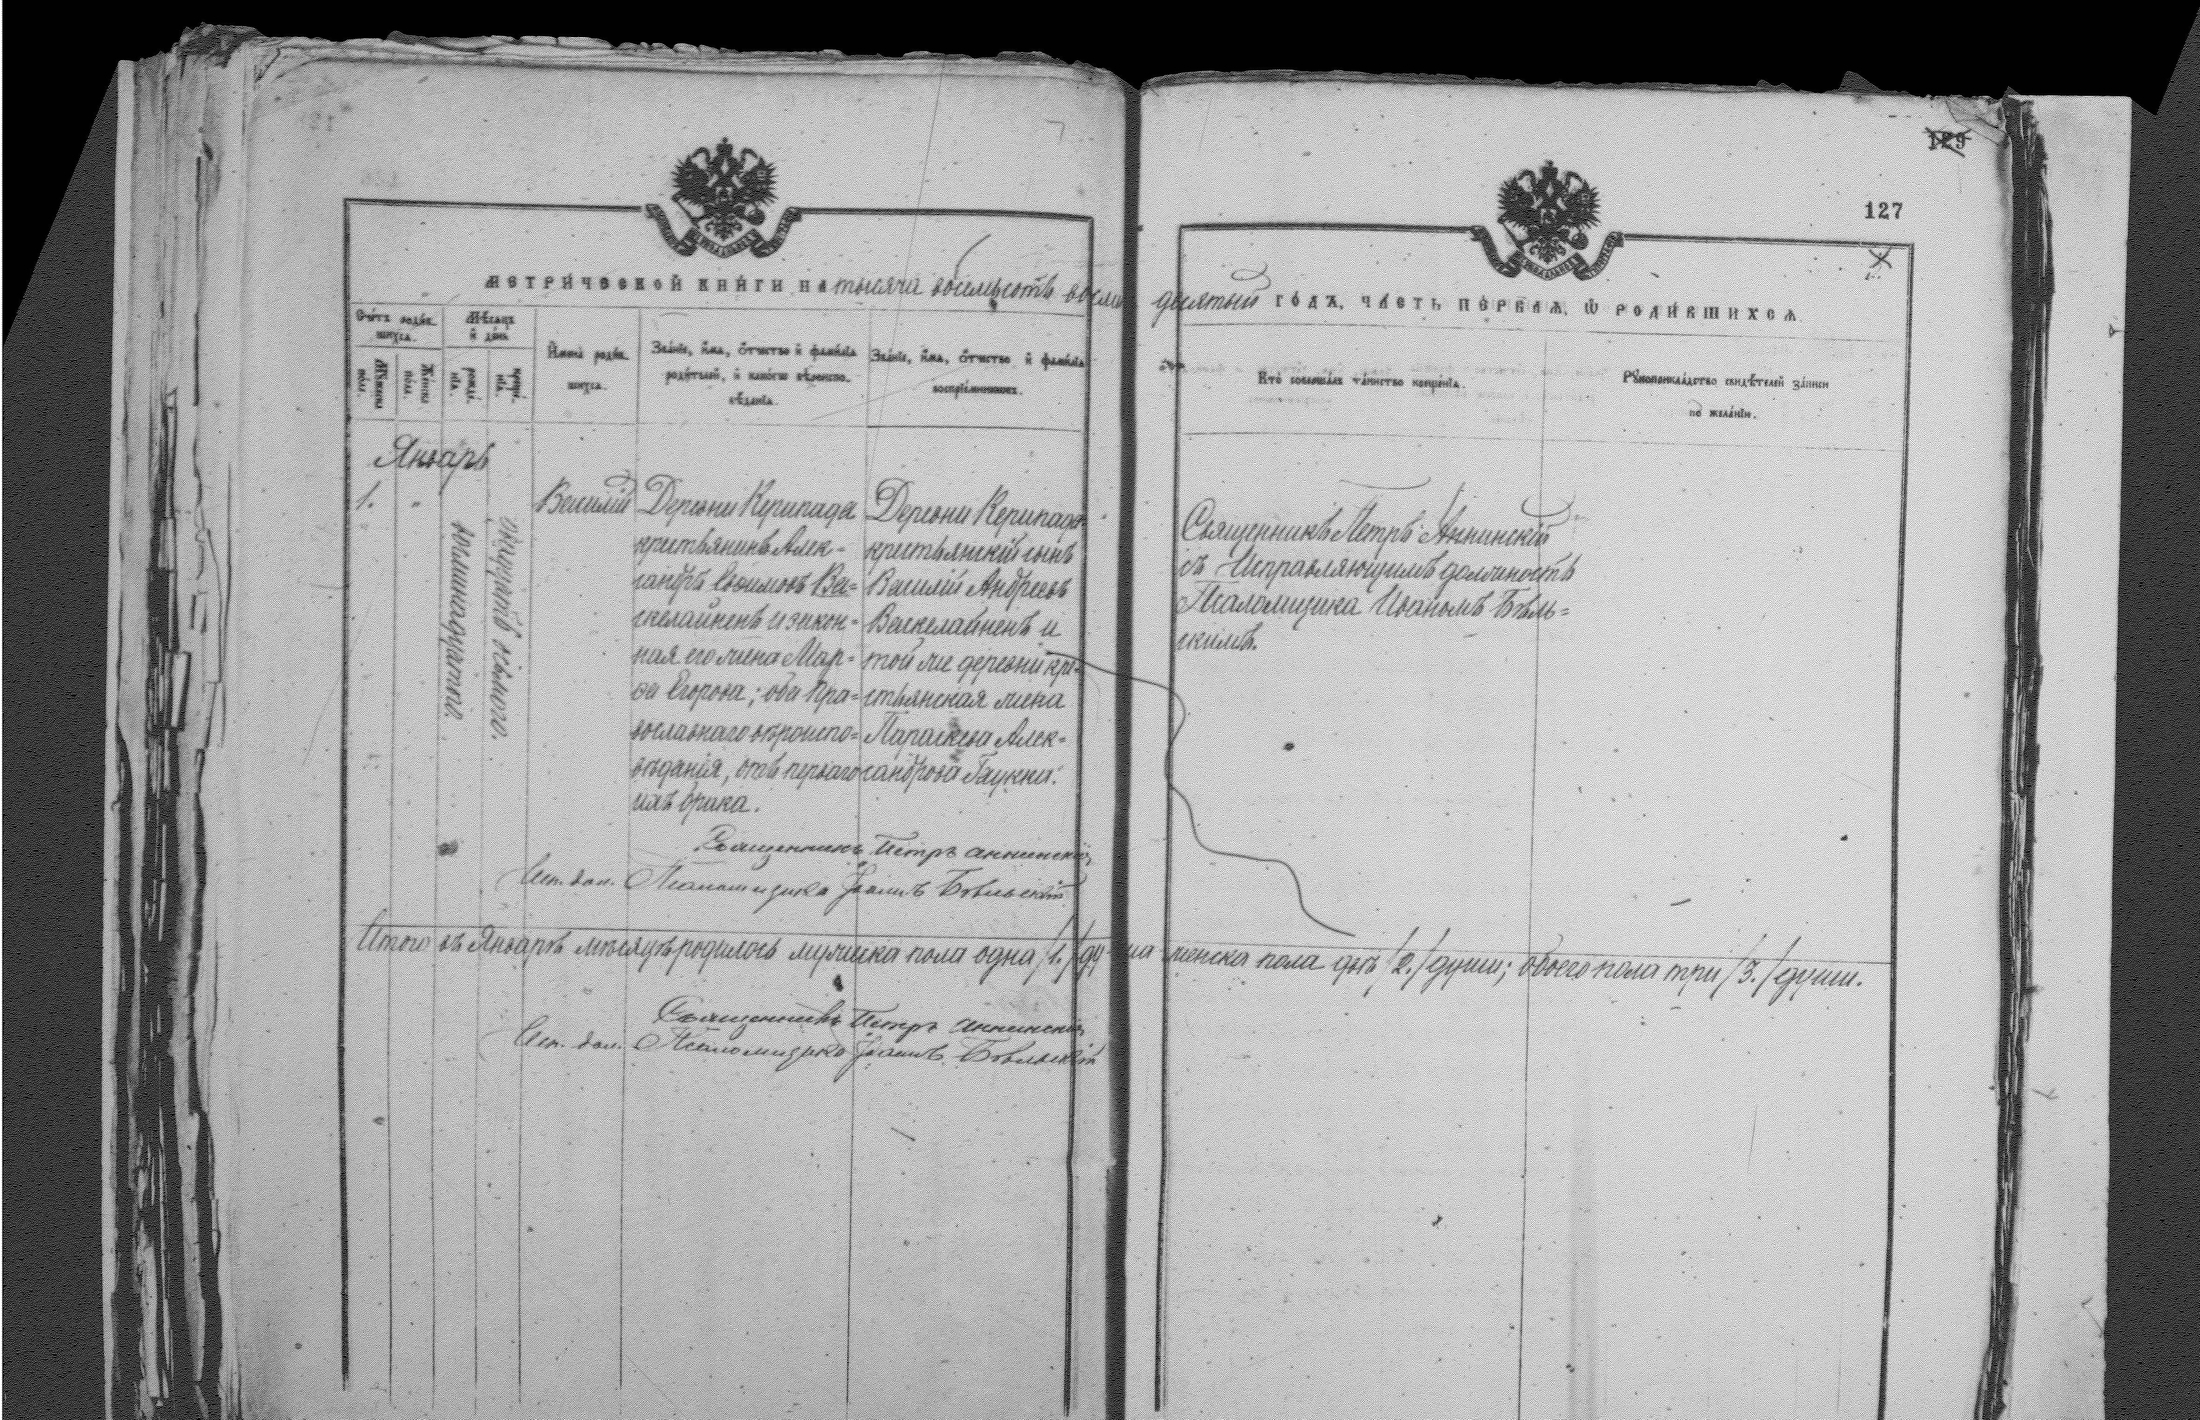 129
127
МЕТРИ́ЧЕСКОЙ КНИ́ГИ НА тысяча восемьсотъ восемь десятый ГО́ДЪ, ЧА́СТЬ ПЕ́РВАЯ, Ѡ РОДИ́ВШИХСЯ
Сче́тъ роди́вшихся.
Му́жеска по́ла.
Же́нска по́ла.
Мѣ́сяцъ и де́нь
рожде́нія.
креще́нія.
Имена̀ роди́вшихся.
Зва́ніе, и́мя, о́тчество и фами́лія роди́телей, и како́го вѣроисповѣ́данія.
Зва́ніе, и́мя, о́тчество и фами́лія воспріе́мниковъ.
Кто̀ соверша́лъ та́инство креще́нія.
Рукоприкла́дство свидѣ́телей за́писи по жела́нію.
Январь
1.
"
восемнадцатого.
двадцать седьмого.
Василій
Деревни Керипада
крестьянинъ Алек=
сандръ Евѳимовъ Ва=
скелайненъ и закон=
ная его жена Мар=
ѳа Егорова; оба пра=
вославнаго вѣроиспо=
вѣданія, отъ перваго
ихъ брака.
Деревни Керипада
крестьянскій сынъ
Василій Андреевъ
Васкелайненъ и
той же деревни кре=
стьянская жена
Параскева Алек=
сандрова
Священникъ Петръ Аннинскій
съ Исправляющимъ должность
Псаломщика Іоанномъ Бѣль=
скимъ.
Священникъ Петръ Аннинскій
Исп. дол. Псаломщика Іоаннъ Бѣльскій
Итого въ Январѣ мѣсяцѣ родилось мужеска пола одна /1./ душа женска пола двѣ /2./ души; обоего пола три /3./ души.
Священникъ Петръ Аннинскій
Исп. дол. Псаломщика Іоаннъ Бѣльскій